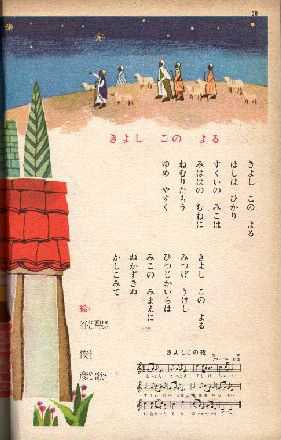 きよし この よる
きよし この よる
ほしは ひかり
すくいの みこは
みははの むねに
ねむりたもう
ゆめ やすく
きよし この よる
みつげ うけし
ひつじかいらは
みこの みまえに
ぬかずきぬ
かしこみて
絵
きよしこの夜